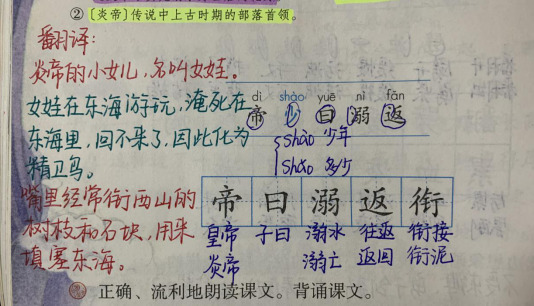 ②〔炎帝〕传说中上古时期的部落首领。
翻译:
炎帝的小女儿,名叫女娃。
女娃在东海游玩,淹死在
东海里,回不来了,因此化为
精卫鸟。
嘴里经常衔西山的
树枝和石块,用来
填塞东海。
dì shào yuē nì fǎn
帝 少 曰 溺 返
shào 少年
shǎo 多少
帝 曰 溺 返 衔
皇帝 子曰 溺水 往返 衔接
炎帝 溺亡 返回 衔泥
正确、流利地朗读课文。背诵课文。